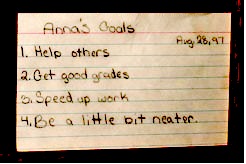 Anna's Goals
Aug. 28, 97
1. Help others
2. Get good grades
3. Speed up work
4. Be a little bit neater.